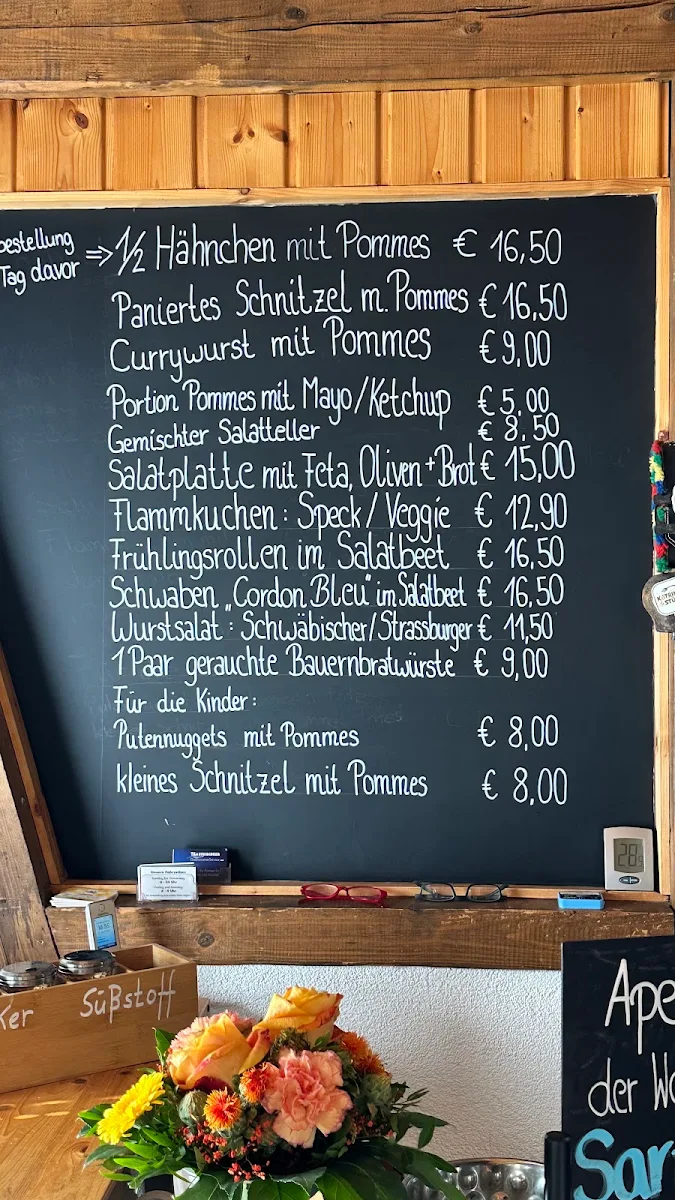 bestellung
Tag davor
⇒ 1/2 Hähnchen mit Pommes € 16,50
Paniertes Schnitzel m. Pommes € 16,50
Currywurst mit Pommes € 9,00
Portion Pommes mit Mayo/Ketchup € 5,00
Gemischter Salatteller € 8,50
Salatplatte mit Feta, Oliven + Brot € 15,00
Flammkuchen: Speck/Veggie € 12,90
Frühlingsrollen im Salatbeet € 16,50
Schwaben „Cordon Bleu“ im Salatbeet € 16,50
Wurstsalat: Schwäbischer/Strassburger € 11,50
1 Paar gerauchte Bauernbratwürste € 9,00
Für die Kinder:
Putennuggets mit Pommes € 8,00
kleines Schnitzel mit Pommes € 8,00
28
ker Süßstoff
Ape
der Wo
Sar